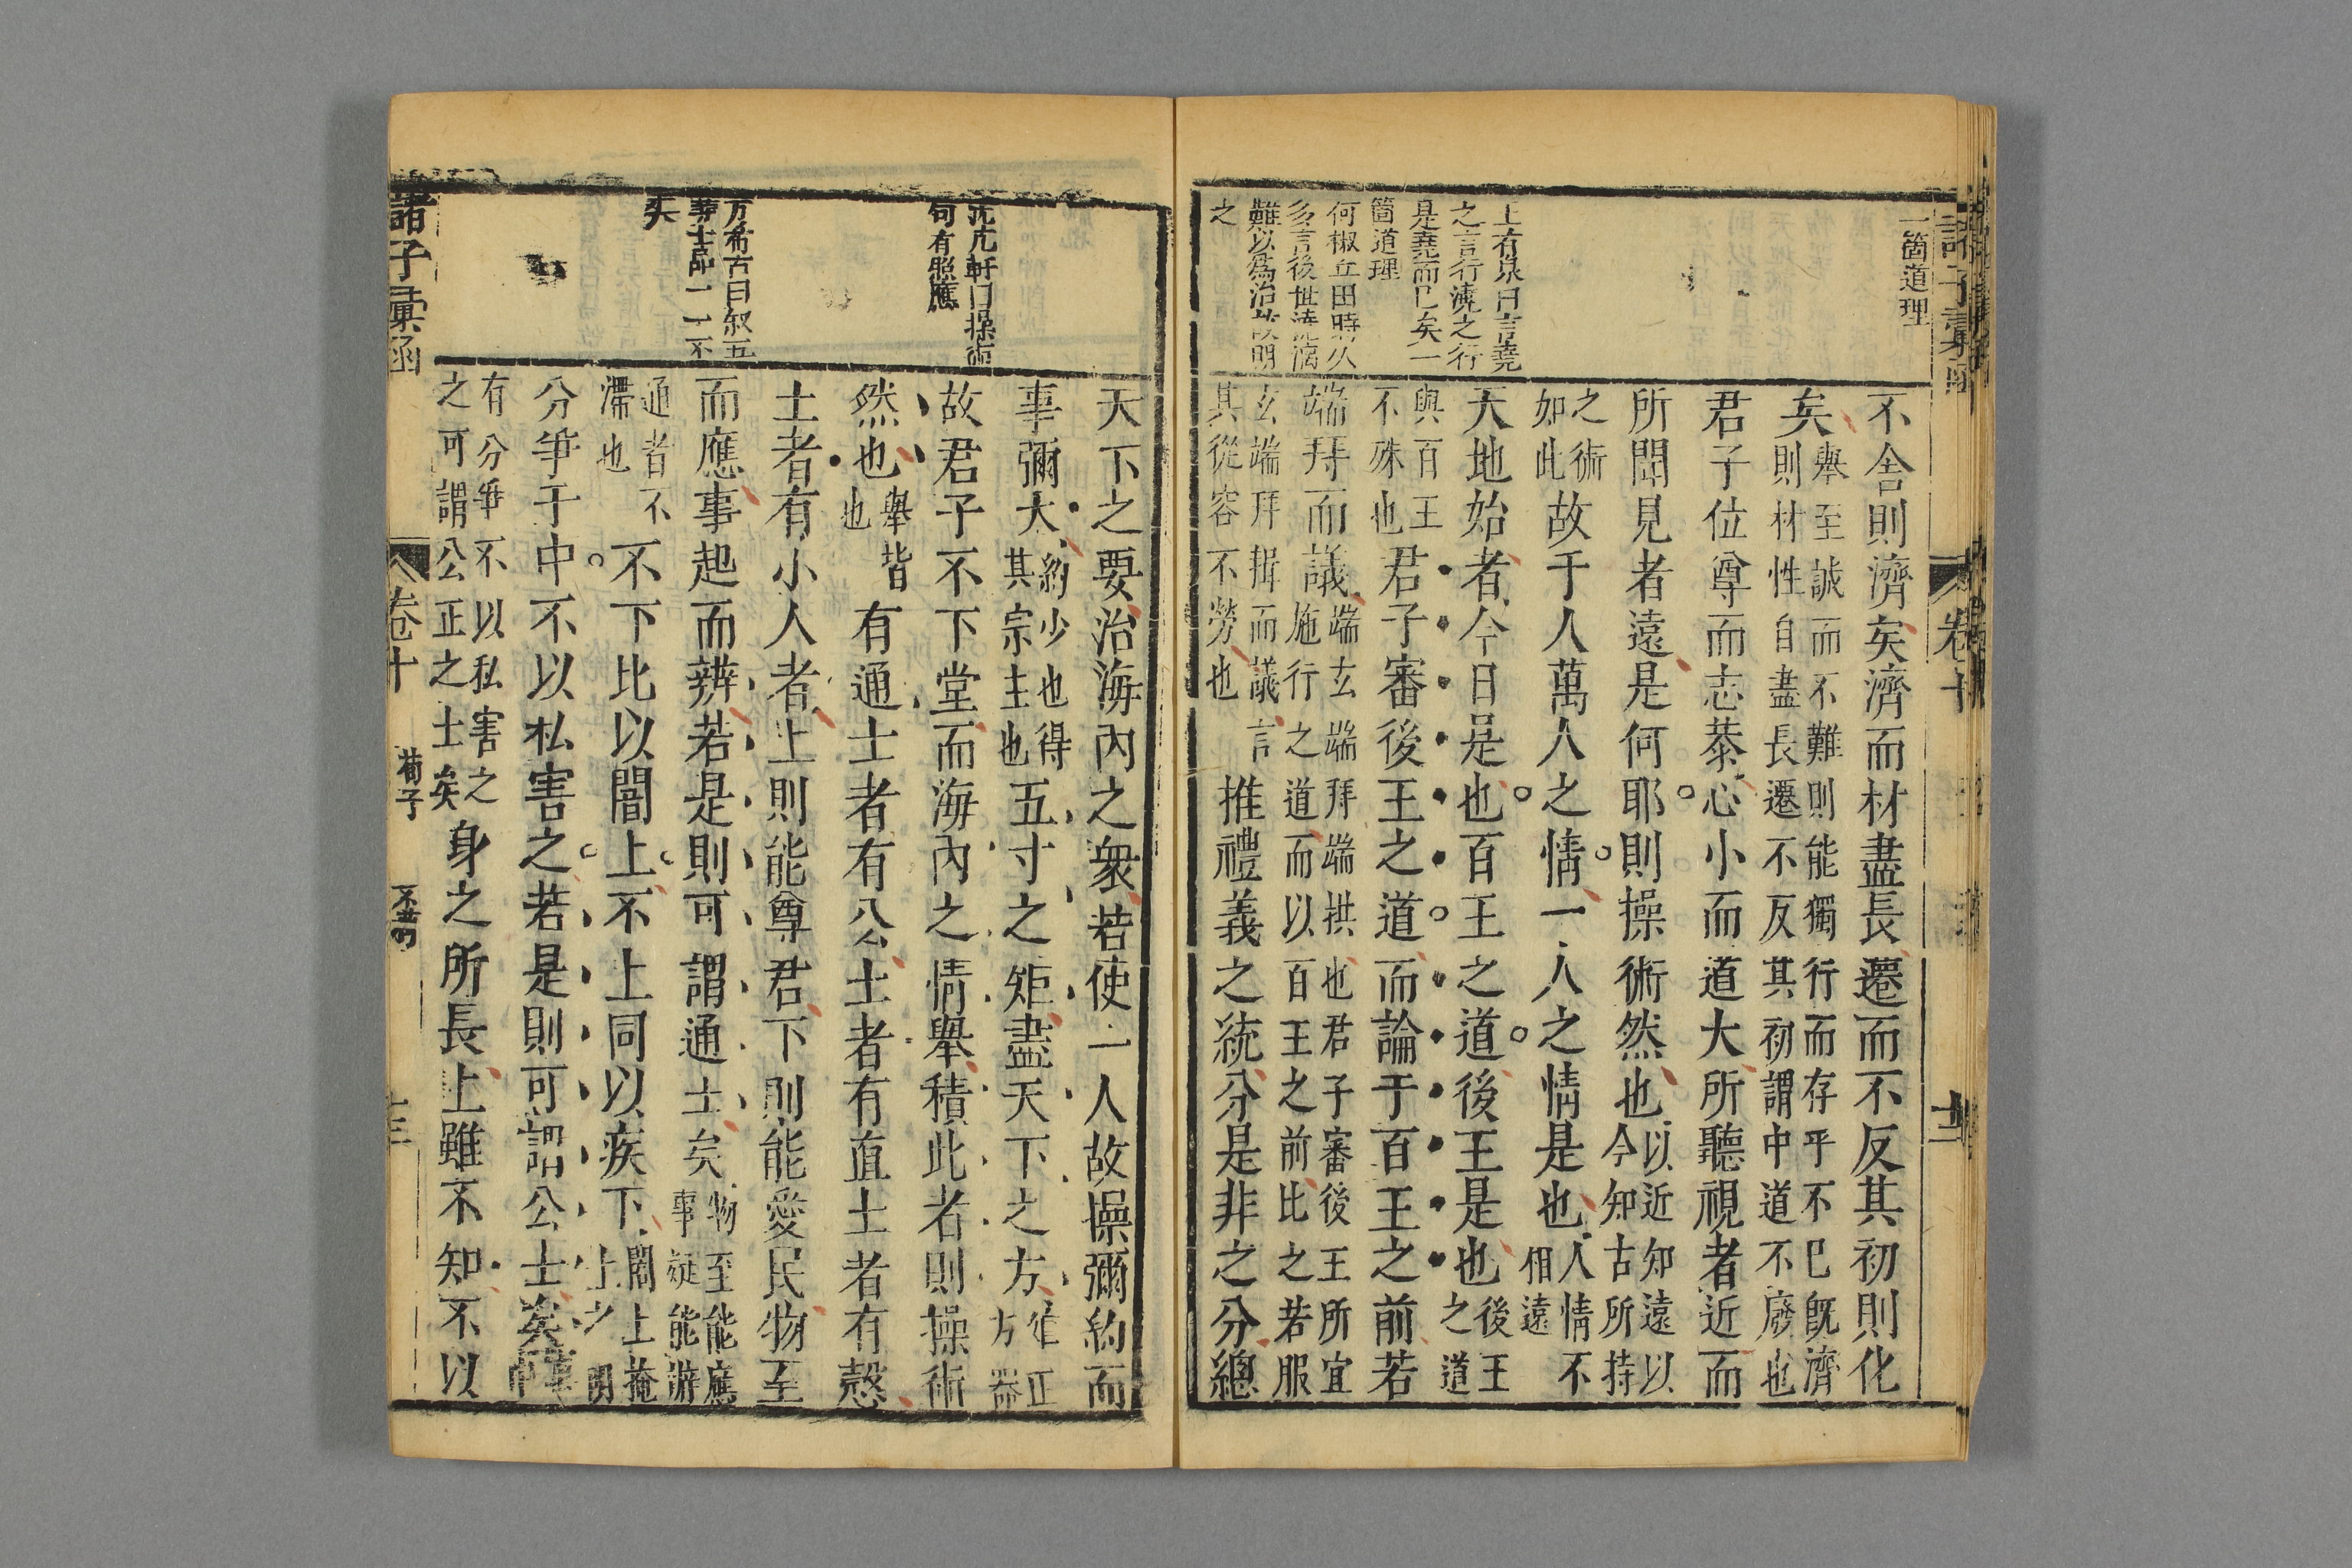 一箇道理
王有泉曰言堯
之言行堯之行
是堯而已矣一
箇道理
何椒丘曰時久
多言後世澆漓
難以爲治故明
之
不舍則濟矣濟而材盡長遷而不反其初則化
矣舉至誠而不難則能獨行而存乎不已既濟則材性自盡長遷不反其初謂中道不廢也
君子位尊而志恭心小而道大所聽視者近而
所聞見者遠是何耶則操術然也以近知遠以今知古所持
之術如此故于人萬人之情一人之情是也人情不相遠
天地始者今日是也百王之道後王是也後王之道
與百王不殊也君子審後王之道而論于百王之前若
端拜而議端玄端拜端拱也君子審後王所宜施行之道而以百王之前比之若服
玄端拜揖而議言其從容不勞也推禮義之統分是非之分總
卷十
沈几軒曰操術
句有照應
方希古曰叙五
等士品一一不
失
天下之要治海內之衆若使一人故操彌約而
事彌大約少也得其宗主也五寸之矩盡天下之方矩正方器
故君子不下堂而海內之情舉積此者則操術
然也舉皆也有通士者有公士者有直士者有愨
士者有小人者上則能尊君下則能愛民物至
而應事起而辨若是則可謂通士矣物至能應事疑能辨
通者不滯也不下比以闇上不上同以疾下闇上掩上之明
分爭于中不以私害之若是則可謂公士矣謂事中
有分爭不以私害之之可謂公正之士矣身之所長上雖不知不以
諸子彙函
卷十
荀子